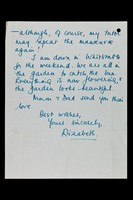 — although, of course, my Tutor
may repeat the manœuvre
again!
I am down in Whitsmoor
for the weekend. We are all in
the garden to catch the sun.
Everything is now flowering &
the garden looks beautiful.
Mum & Dad send you their
love.
Best wishes,
Yours sincerely,
Elizabeth